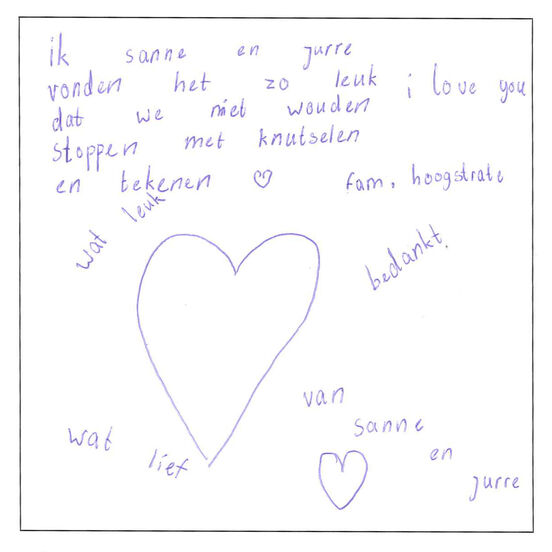 ik sanne en jurre
vonden het zo leuk i love you
dat we niet wouden
stoppen met knutselen
en tekenen ♡ fam. hoogstrate
wat leuk
bedankt.
van
sanne
wat lief
en
jurre